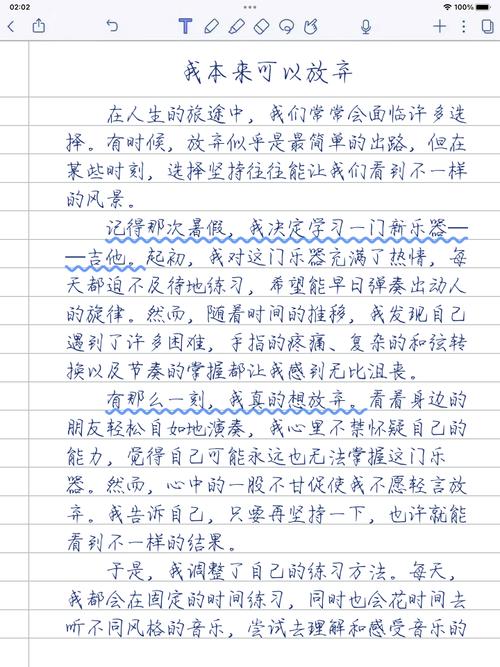 02:02
100%
T
我本来可以放弃
在人生的旅途中，我们常常会面临许多选
择。有时候，放弃似乎是最简单的出路，但在
某些时刻，选择坚持往往能让我们看到不一样
的风景。
记得那次暑假，我决定学习一门新乐器—
—吉他。起初，我对这门乐器充满了热情，每
天都迫不及待地练习，希望能早日弹奏出动人
的旋律。然而，随着时间的推移，我发现自己
遇到了许多困难，手指的疼痛、复杂的和弦转
换以及节奏的掌握都让我感到无比沮丧。
有那么一刻，我真的想放弃。看着身边的
朋友轻松自如地演奏，我心里不禁怀疑自己的
能力，觉得自己可能永远也无法掌握这门乐
器。然而，心中的一股不甘促使我不愿轻言放
弃。我告诉自己，只要再坚持一下，也许就能
看到不一样的结果。
于是，我调整了自己的练习方法。每天，
我都会在固定的时间练习，同时也会花时间去
听不同风格的音乐，尝试去理解和感受音乐的